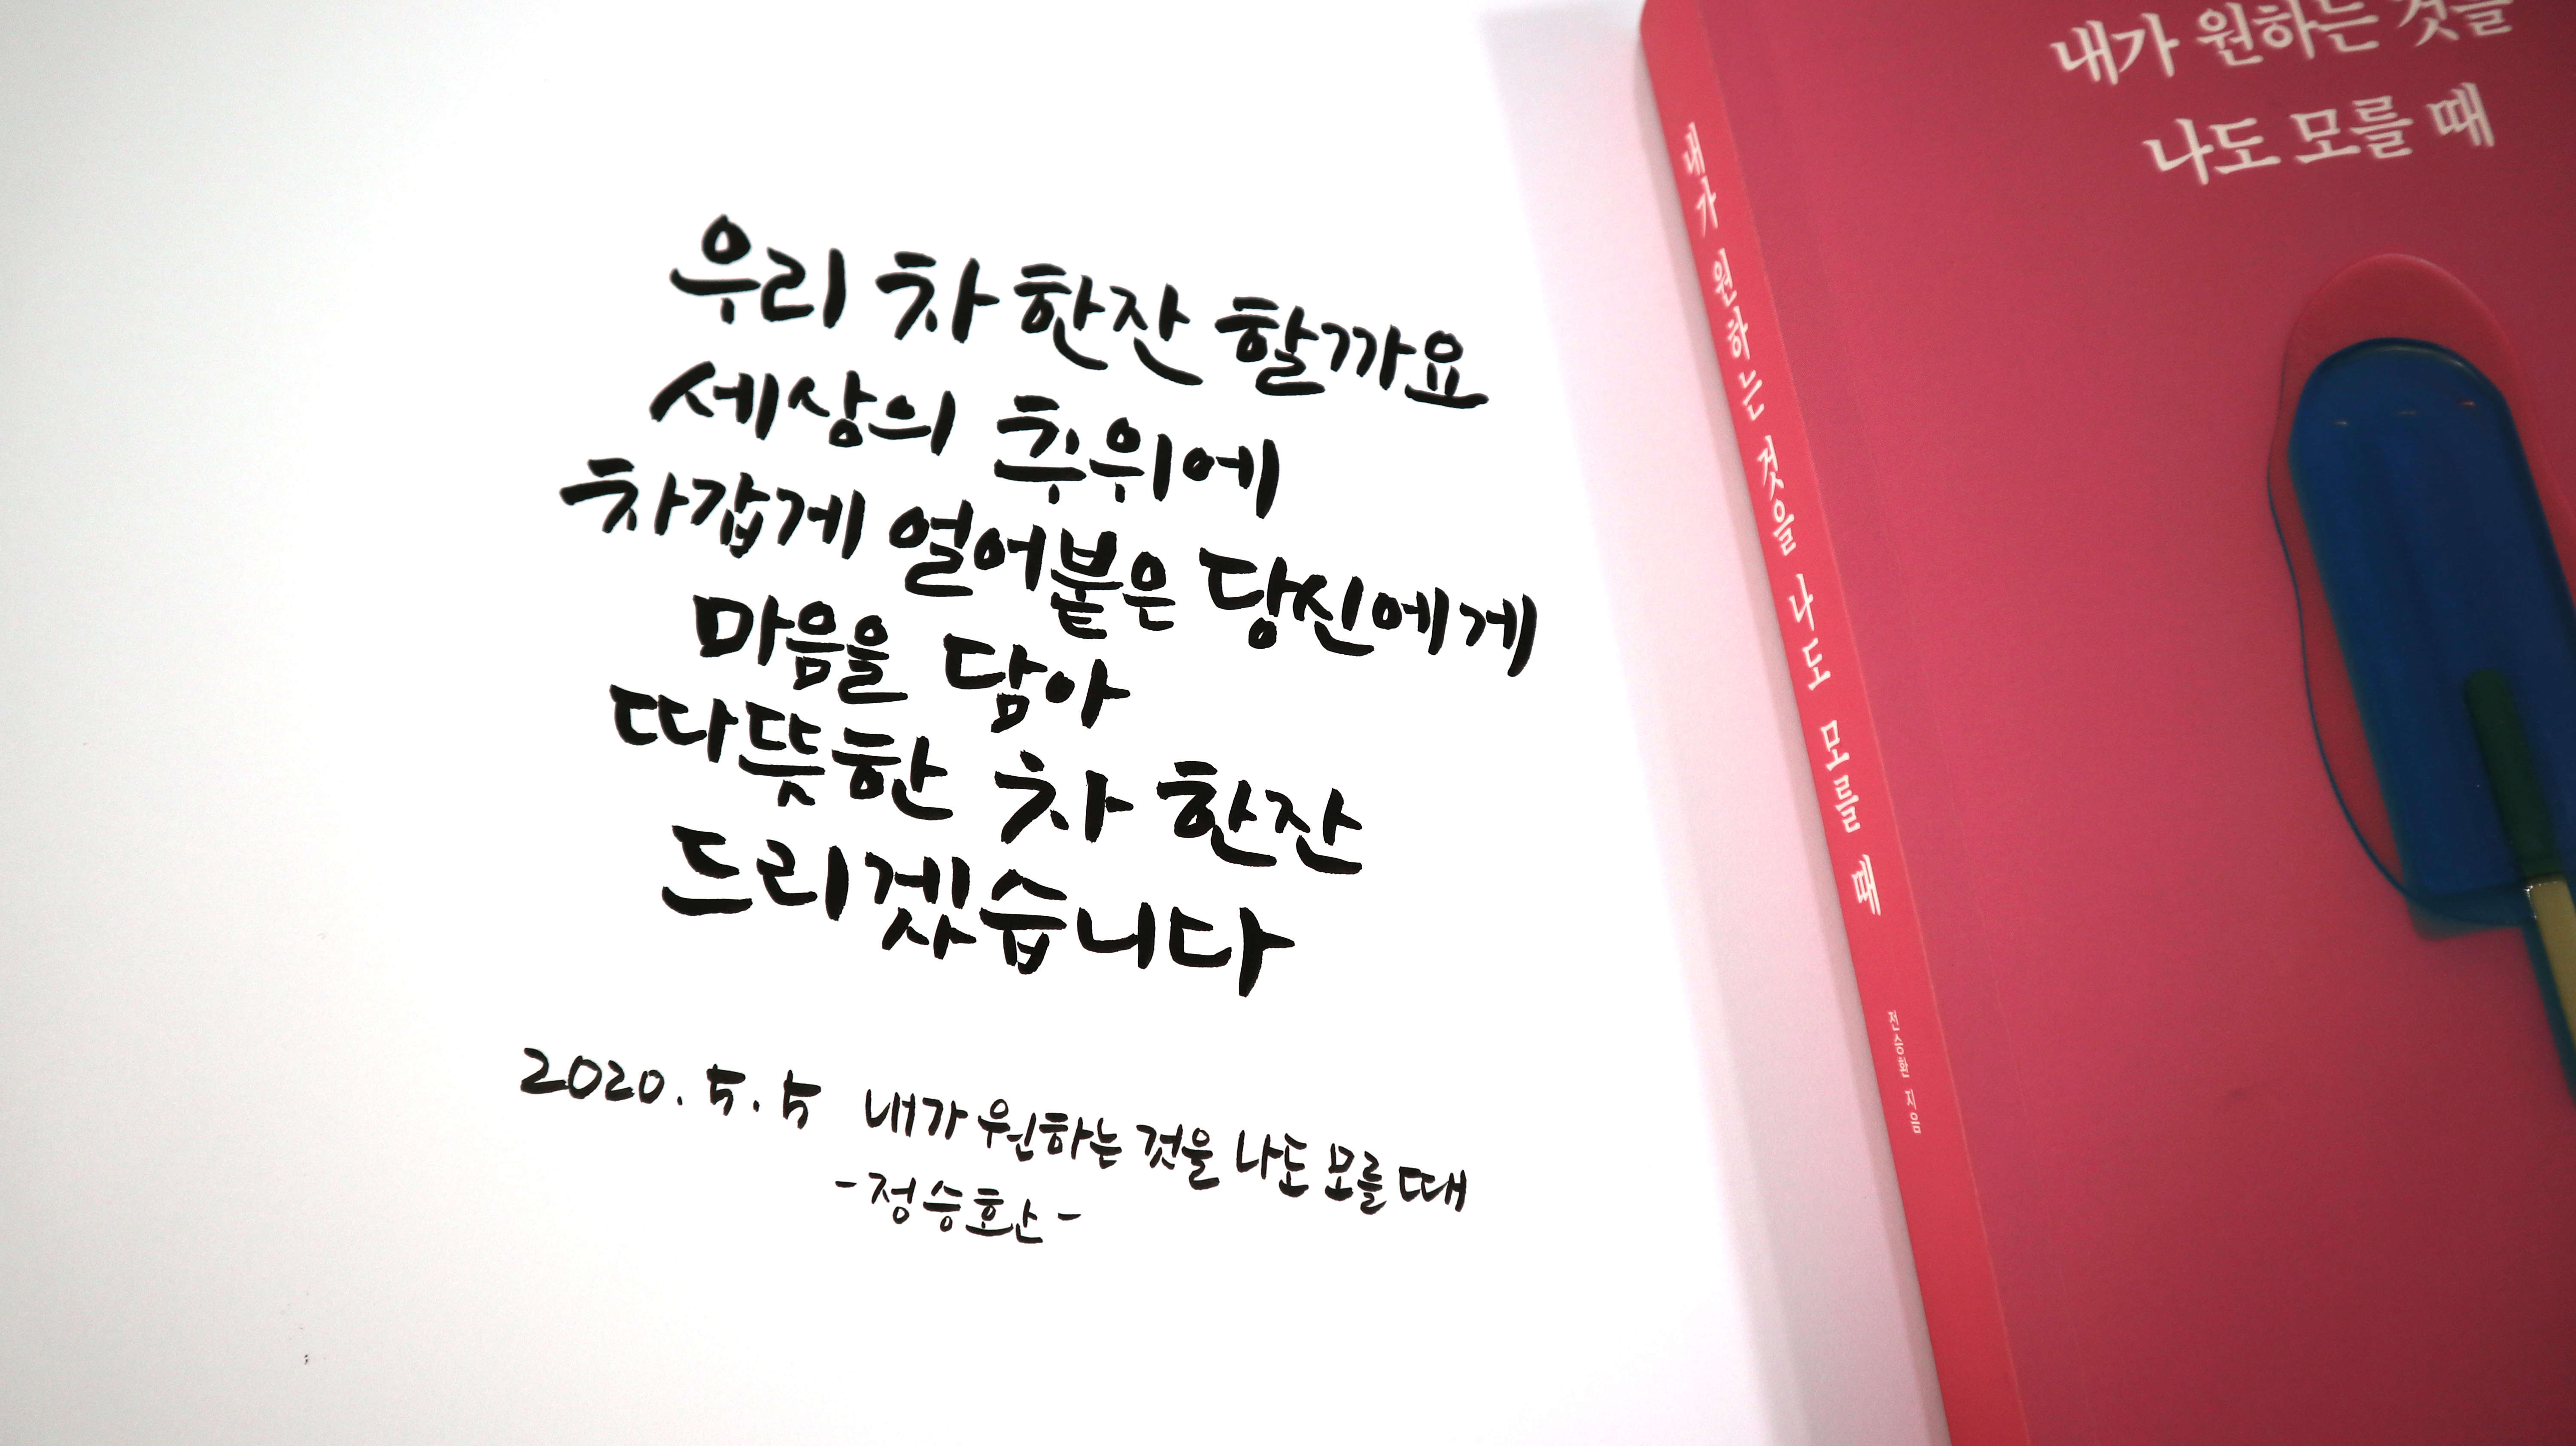 우리 차 한잔 할까요
세상의 추위에
차갑게 얼어붙은 당신에게
마음을 담아
따뜻한 차 한잔
드리겠습니다
2020. 5. 5 내가 원하는 것을 나도 모를 때
-정승환-
내가 원하는 것을
나도 모를 때
내가 원하는 것을 나도 모를 때
전승환 지음